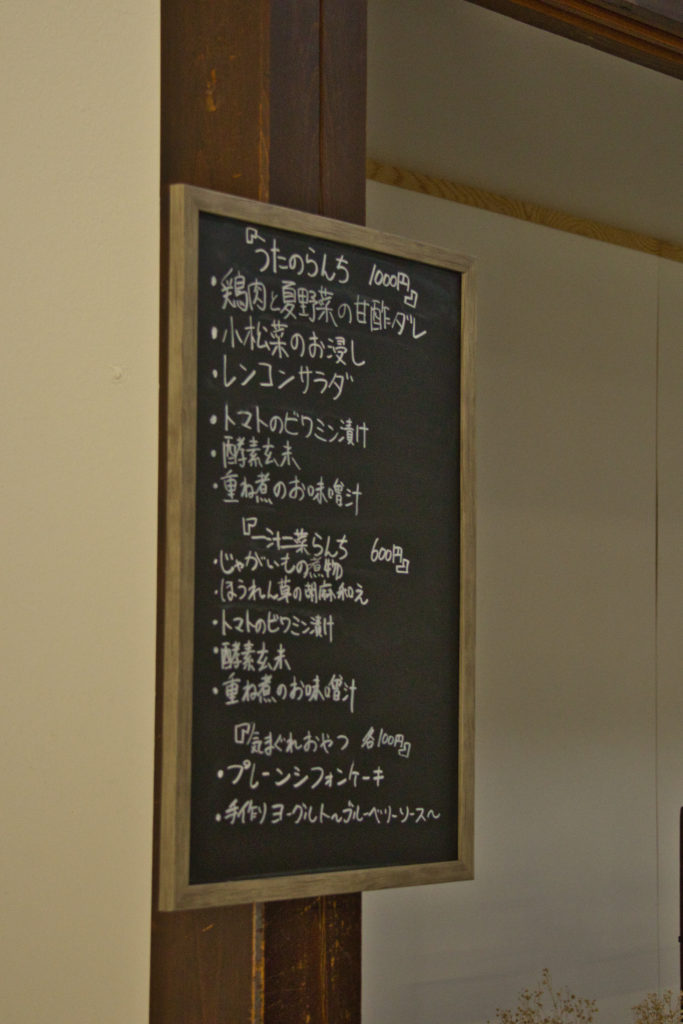 『うたのらんち 1000円』
・鶏肉と夏野菜の甘酢ダレ
・小松菜のお浸し
・レンコンサラダ
・トマトのビワミン漬け
・酵素玄米
・重ね煮のお味噌汁
『一汁二菜らんち 600円』
・じゃがいもの煮物
・ほうれん草の胡麻和え
・トマトのビワミン漬け
・酵素玄米
・重ね煮のお味噌汁
『気まぐれおやつ 各100円』
・プレーンシフォンケーキ
・手作りヨーグルト〜ブルーベリーソース〜